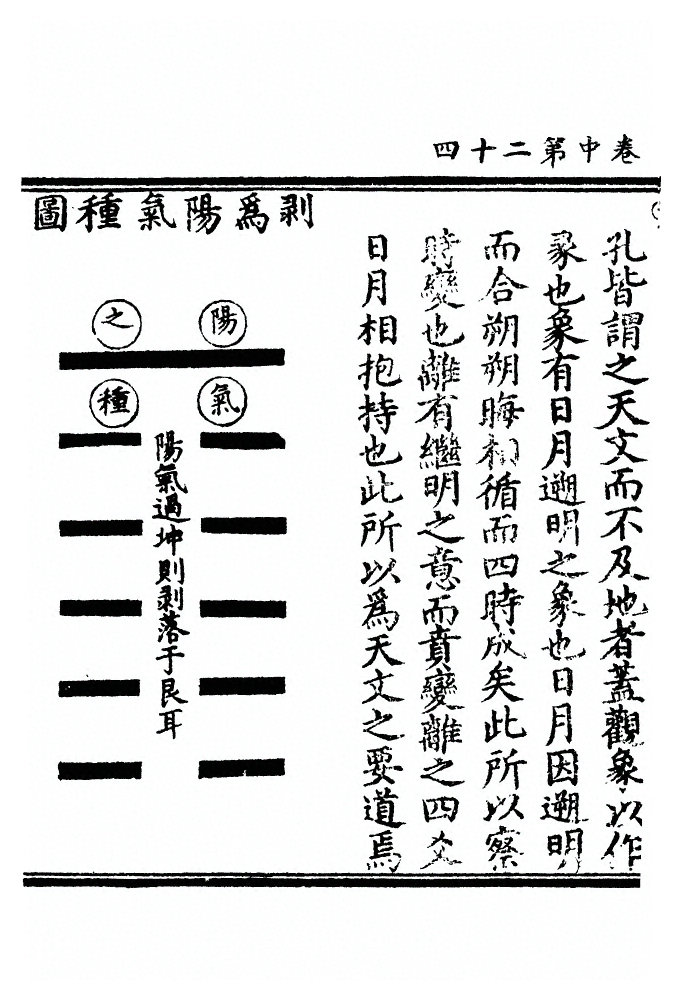 卷中第二十四
孔皆謂之天文而不及地者蓋觀象以作
彖也象有日月遡明之象也日月因遡明
而合朔朔晦相循而四時成矣此所以察
時變也離有繼明之意而賁變離之四爻
日月相抱持也此所以爲天文之要道焉
剥爲陽氣種圖
陽氣
之種
陽氣過坤則剥落于艮耳